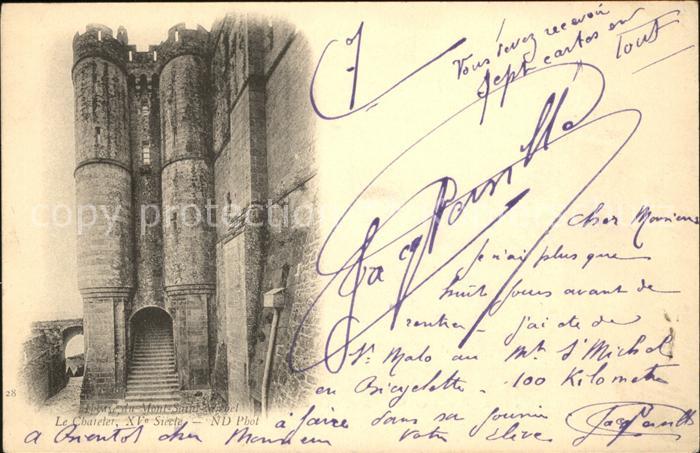 7
Vous devez recevoir
sept cartes en
tout
cher Monsieur
Je n'ai plus que
huit jours avant de
rentrer - j'ai été de
St Malo au Mt St Michel
en Bicyclette - 100 Kilomètres
à faire dans sa journée
A Bientôt cher Monsieur
votre élève
28
Abbaye du Mont-Saint-Michel
Le Chatelet, XVe Siècle. — ND Phot
copy protection